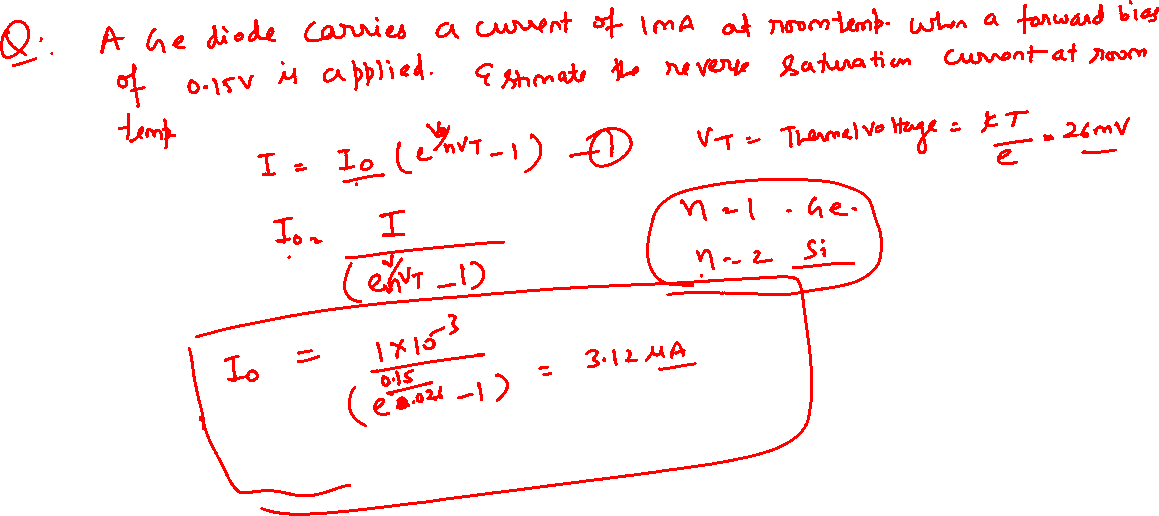 Q. A Ge diode carries a current of 1mA at room temp. when a forward bias
of 0.15V is applied. Estimate the reverse saturation current at room
temp
I = I₀ (e^{V/nVT} - 1) - ①
VT = Thermal voltage = kT/e = 26mV
n = 1 - Ge.
n = 2 Si
I₀ = I/(e^{V/nVT} - 1)
I₀ = 1×10⁻³/(e^{0.15/0.026} - 1) = 3.12 μA